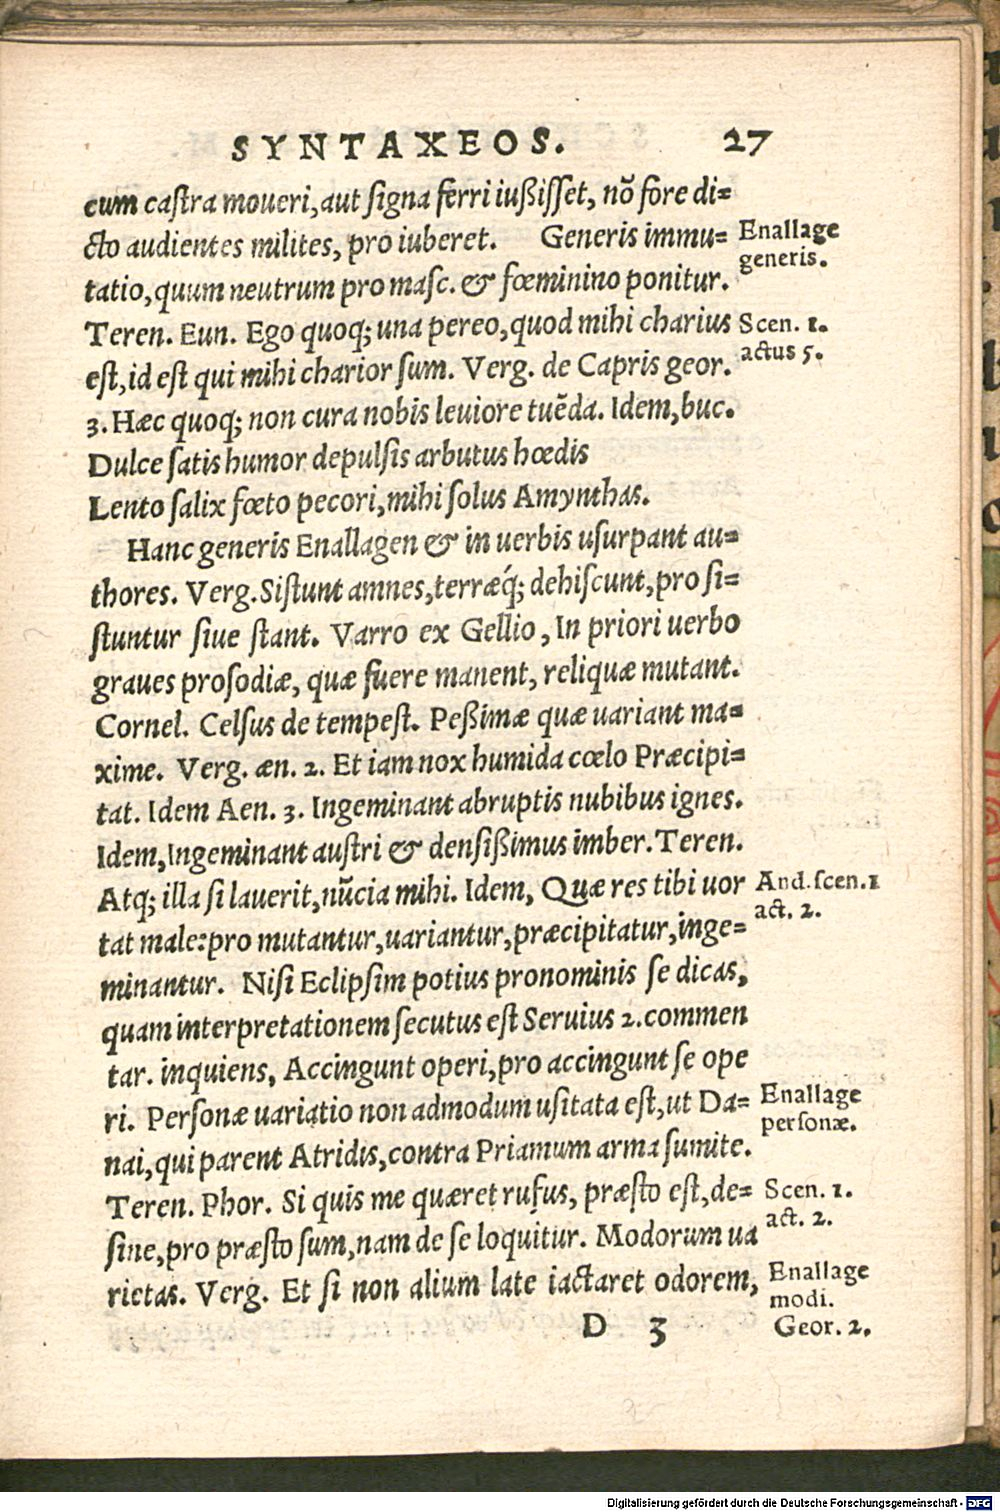 SYNTAXEOS. 27
cum castra moueri, aut signa ferri iußisset, nõ fore di=
cto audientes milites, pro iuberet. Generis immu=
Enallage
generis.
tatio, quum neutrum pro masc. & fœminino ponitur.
Teren. Eun. Ego quoq; una pereo, quod mihi charius
Scen. 1.
actus 5.
est, id est qui mihi charior sum. Verg. de Capris geor.
3. Hæc quoq; non cura nobis leuiore tuẽda. Idem, buc.
Dulce satis humor depulsis arbutus hœdis
Lento salix fœto pecori, mihi solus Amynthas.
Hanc generis Enallagen & in uerbis usurpant au=
thores. Verg. Sistunt amnes, terræq́; dehiscunt, pro si=
stuntur siue stant. Varro ex Gellio, In priori uerbo
graues prosodiæ, quæ fuere manent, reliquæ mutant.
Cornel. Celsus de tempest. Peßimæ quæ uariant ma=
xime. Verg. æn. 2. Et iam nox humida cœlo Præcipi=
tat. Idem Aen. 3. Ingeminant abruptis nubibus ignes.
Idem, Ingeminant austri & densißimus imber. Teren.
Atq; illa si lauerit, nũcia mihi. Idem, Quæ res tibi uor
And. scen. 1
act. 2.
tat male: pro mutantur, uariantur, præcipitatur, inge=
minantur. Nisi Eclipsim potius pronominis se dicas,
quam interpretationem secutus est Seruius 2. commen
tar. inquiens, Accingunt operi, pro accingunt se ope
ri. Personæ uariatio non admodum usitata est, ut Da=
Enallage
personæ.
nai, qui parent Atridis, contra Priamum arma sumite.
Teren. Phor. Si quis me quæret rufus, præsto est, de=
Scen. 1.
act. 2.
sine, pro præsto sum, nam de se loquitur. Modorum ua
rietas. Verg. Et si non alium late iactaret odorem,
Enallage
modi.
Geor. 2.
D 3
Digitalisierung gefördert durch die Deutsche Forschungsgemeinschaft - DFG